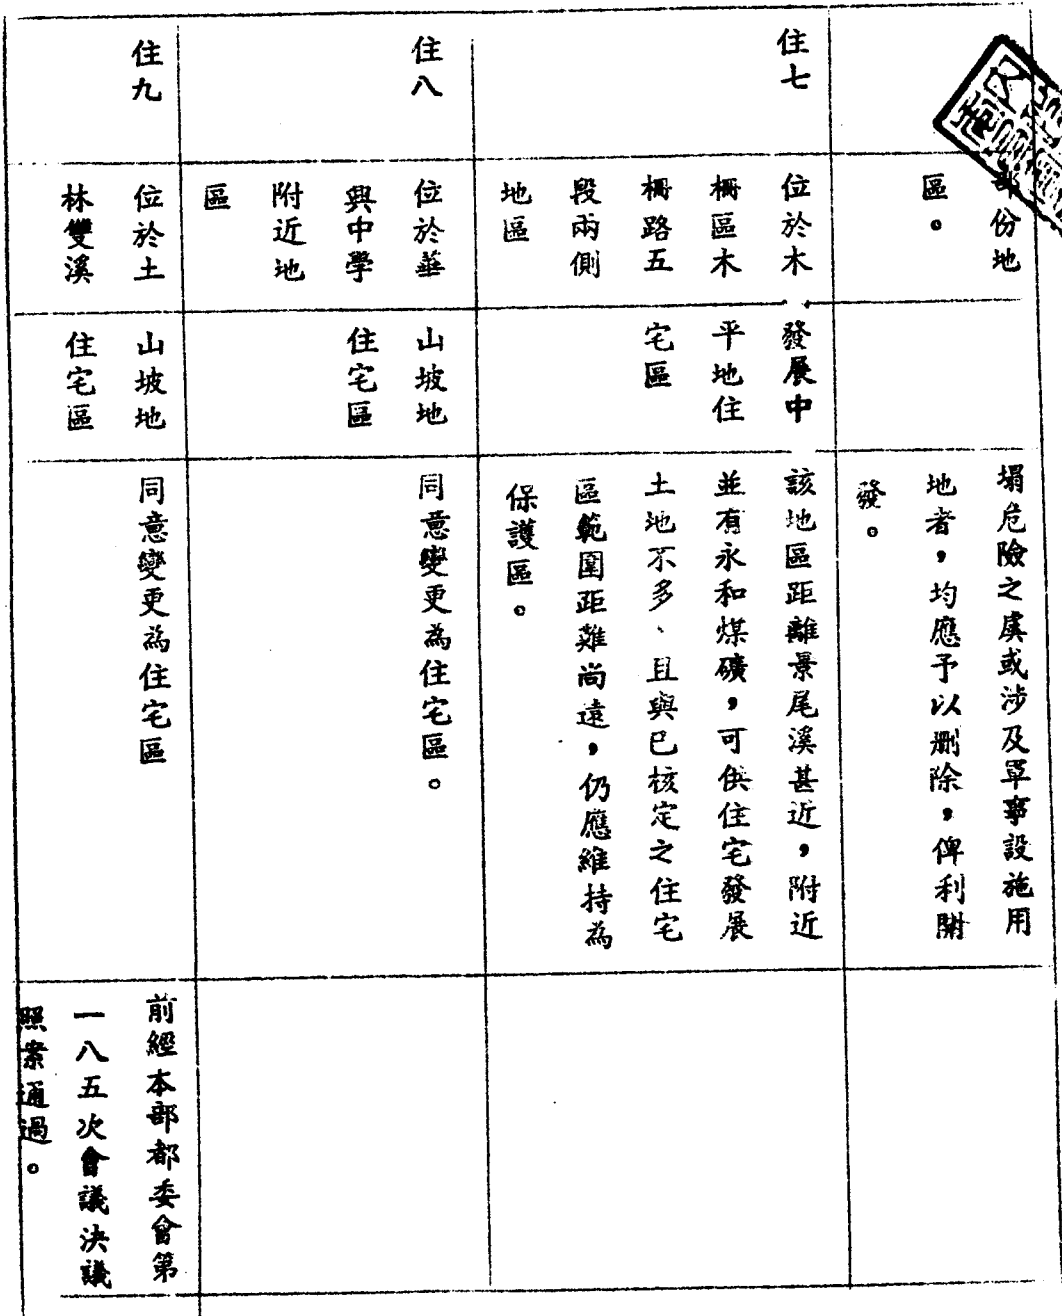 部份地
區。
塌危險之虞或涉及軍事設施用
地者，均應予以刪除，俾利開
發。
住七
位於木
柵區木
柵路五
段兩側
地區
發展中
平地住
宅區
該地區距離景尾溪甚近，附近
並有永和煤礦，可供住宅發展
土地不多、且與已核定之住宅
區範圍距離尚遠，仍應維持為
保護區。
住八
位於華
興中學
附近地
區
山坡地
住宅區
同意變更為住宅區。
住九
位於士
林雙溪
山坡地
住宅區
同意變更為住宅區
前經本部都委會第
一八五次會議決議
照案通過。